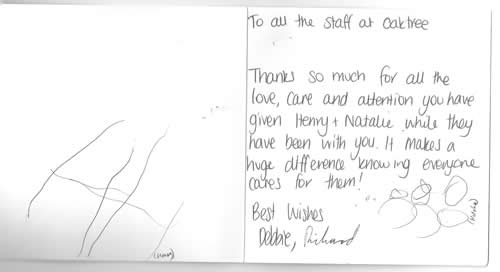 To all the staff at Oaktree
Thanks so much for all the
love, care and attention you have
given Henry + Natalie while they
have been with you. It makes a
huge difference knowing everyone
cares for them!
Best Wishes
Debbie, Richard